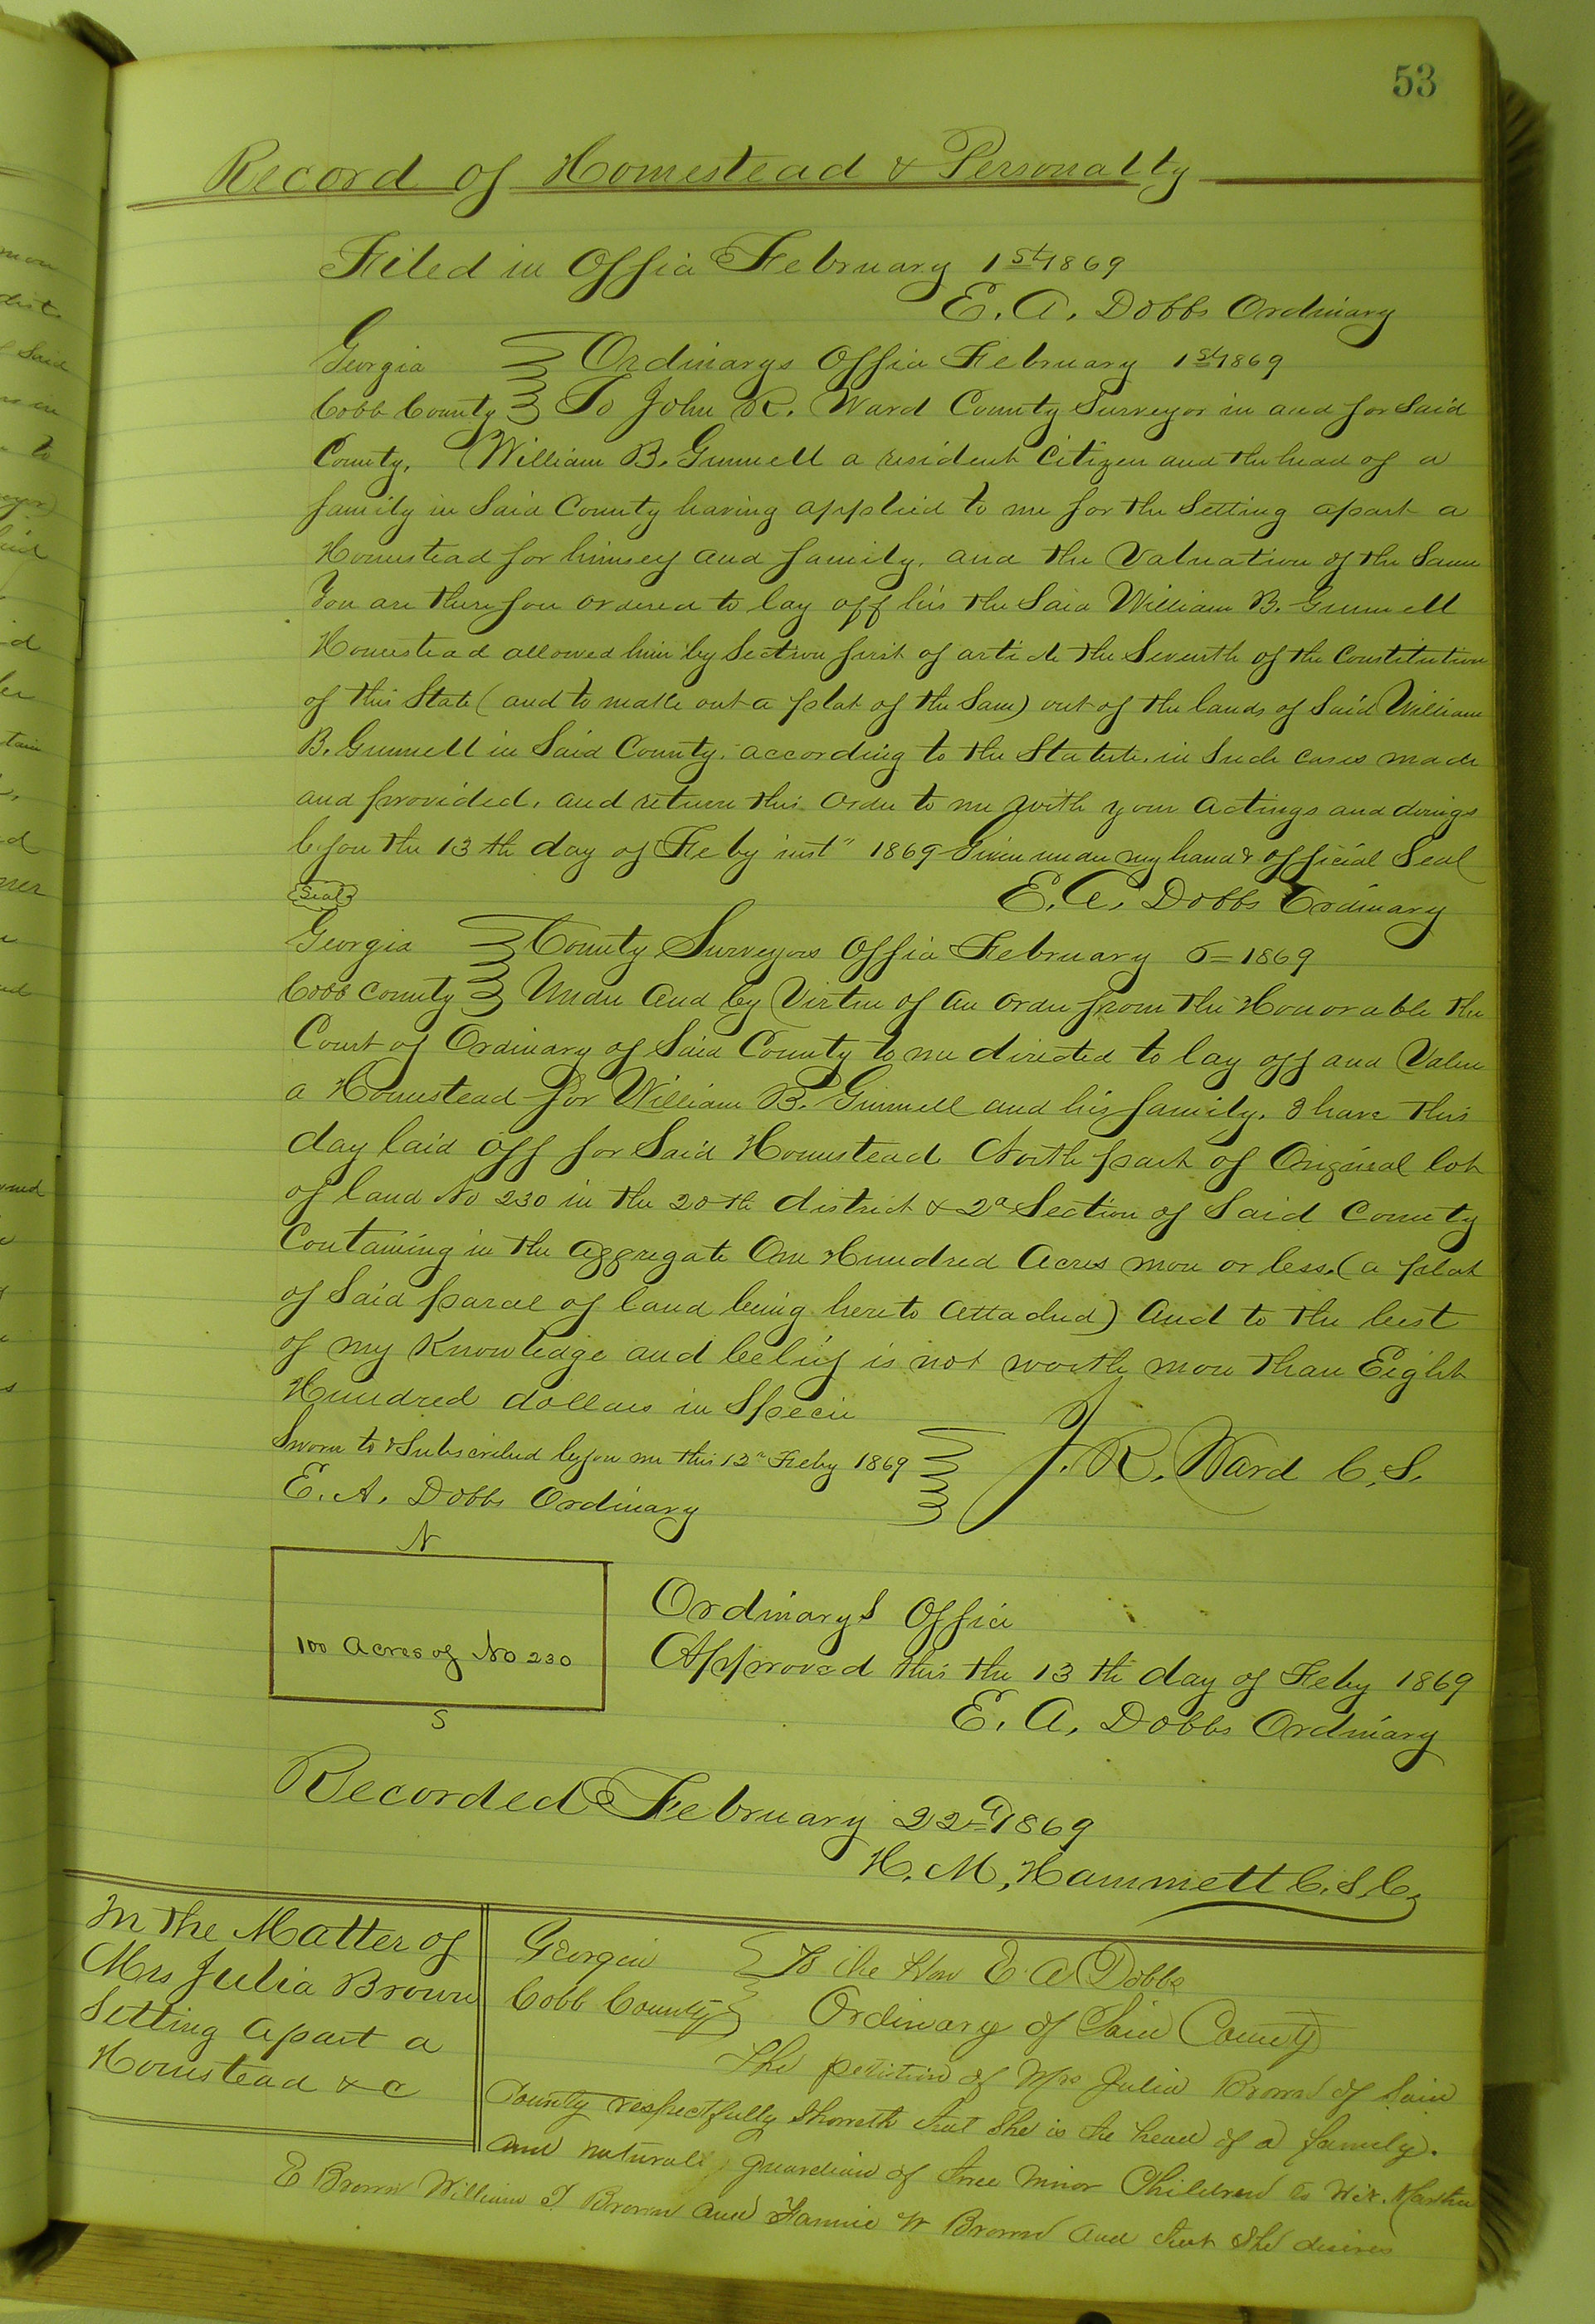 53
Record of Homestead & Personalty
Filed in Office February 1st 1869
E. A. Dobbs Ordinary
Georgia } Ordinarys Office February 1st 1869
Cobb County } To John R. Ward County Surveyor in and for Said
County, William B. Gunnell a resident Citizen and the head of a
family in Said County having applied to me for the Setting apart a
Homestead for himself and family, and the Valuation of the Same
You are therefore ordered to lay off his the Said William B. Gunnell
Homestead allowed him by Section first of article the Seventh of the Constitution
of this State (and to make out a plat of the Same) out of the lands of Said William
B. Gunnell in Said County, according to the Statute in Such cases made
and provided, and return this Order to me with your Actings and doings
before the 13th day of Feby inst" 1869 Given under my hand & official Seal
Seal
E. A. Dobbs Ordinary
Georgia } County Surveyors Office February 6 = 1869
Cobb County } Under and by Virtue of an Order from the Honorable the
Court of Ordinary of Said County to me directed to lay off and Value
a Homestead for William B. Gunnell and his family. I have this
day laid off for Said Homestead North part of Original lot
of land No 230 in the 20th district & 2d Section of Said County
Containing in the Aggregate One Hundred Acres more or less, (a plat
of Said parcel of land being hereto Attached) And to the best
of my Knowledge and belief is not worth more than Eight
Hundred dollars in Specie
Sworn to & Subscribed before me this 12th Feby 1869 } J. R. Ward C. S.
E. A. Dobbs Ordinary
N
100 Acres of No 230
S
Ordinarys Office
Approved this the 13th day of Feby 1869
E. A. Dobbs Ordinary
Recorded February 22d 1869
H. M. Hammett C. S. C.
In the Matter of
Mrs Julia Brown
Setting apart a
Homestead & c
Georgia } To the Hon E. A Dobbs
Cobb County } Ordinary of Said County
The petition of Mrs Julia Brown of Said
County respectfully Showeth that She is the head of a family.
and natural guardian of three Minor Children to Wit. Martha
E Brown William T Brown and Fannie W Brown and that She desires